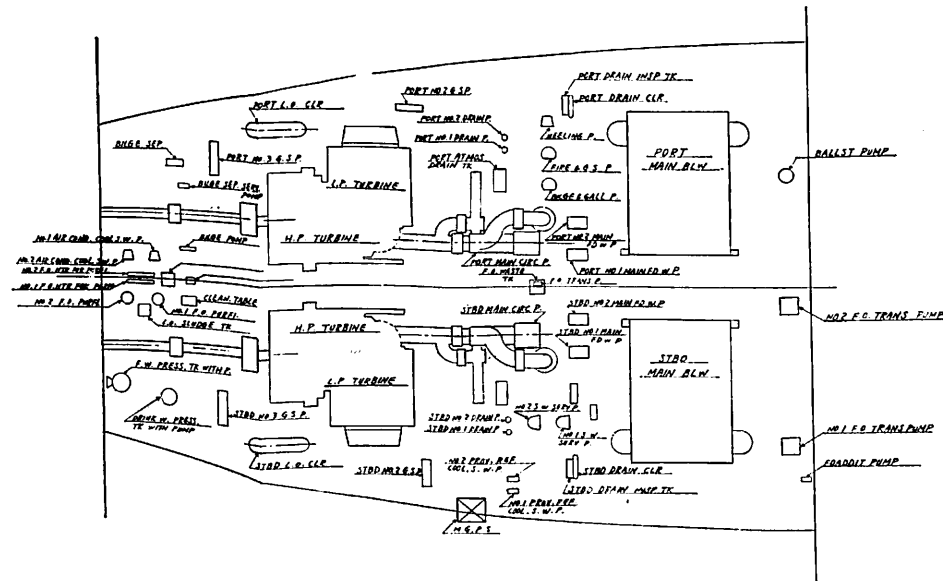 PORT DRAIN INSP TK
PORT DRAIN CLR
PORT NO.2 G.S.P.
PORT L.O. CLR
PORT NO.2 DRAIN P.
PORT NO.1 DRAIN P.
HEELING P.
BILGE SEP.
PORT NO.3 G.S.P.
PORT ATMOS
DRAIN TK
FIRE & G.S.P.
PORT
MAIN BLW
BALLST PUMP
BILGE SEP. SERV.
PUMP
L.P. TURBINE
BILGE & BALL P.
NO.1 AIR COND. COOL. S.W.P.
BILGE PUMP
H.P TURBINE
PORT NO.2 MAIN
F.D.W.P
NO.2 AIR COND. COOL. S.W.P.
PORT MAIN CIRC P.
PORT NO.1 MAIN F.D.W.P
F.O. WASTE
TK
F.O TRANS P.
NO.2 F.O. PURFI.
NO.1 F.O. PURFI.
CLEAN. TABLE
STBD MAIN CIRC P.
STBD NO.2 MAIN F.D.W.P
NO.2 F.O. TRANS. PUMP
SLUDGE TK
H.P. TURBINE
STBD NO.1 MAIN
F.D W P
F.W. PRESS. TK WITH P.
L.P TURBINE
STBD
MAIN BLW
DRINK W. PRESS.
TK WITH PUMP
STBD NO.3 G.S.P.
STBD NO.2 DRAIN P.
STBD NO.1 DRAIN P.
NO.2 S.W SERV P.
NO.1 S.W.
SERV P.
NO.1 F.O TRANS PUMP
STBD L.O. CLR
STBD NO.2 G.S.P.
NO.2 PROV. REF.
COOL. S.W.P
STBD DRAIN CLR
STBD DRAIN INSP TK
NO.1 PROV. REF.
COOL. S.W.P.
M.G.P.S